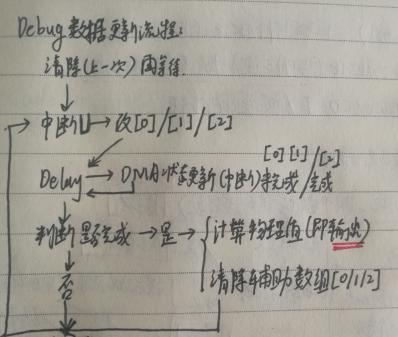 Debug数据更新流程:
清除(上一次)再等待.
中断 → 改[0]/[1]/[2]
[0][1]/[2]
Delay → DMA状态更新(中断)未完成/完成
判断是否完成 → 是 → 计算物理值(即输出)
否
清除辅助数组[0/1/2]